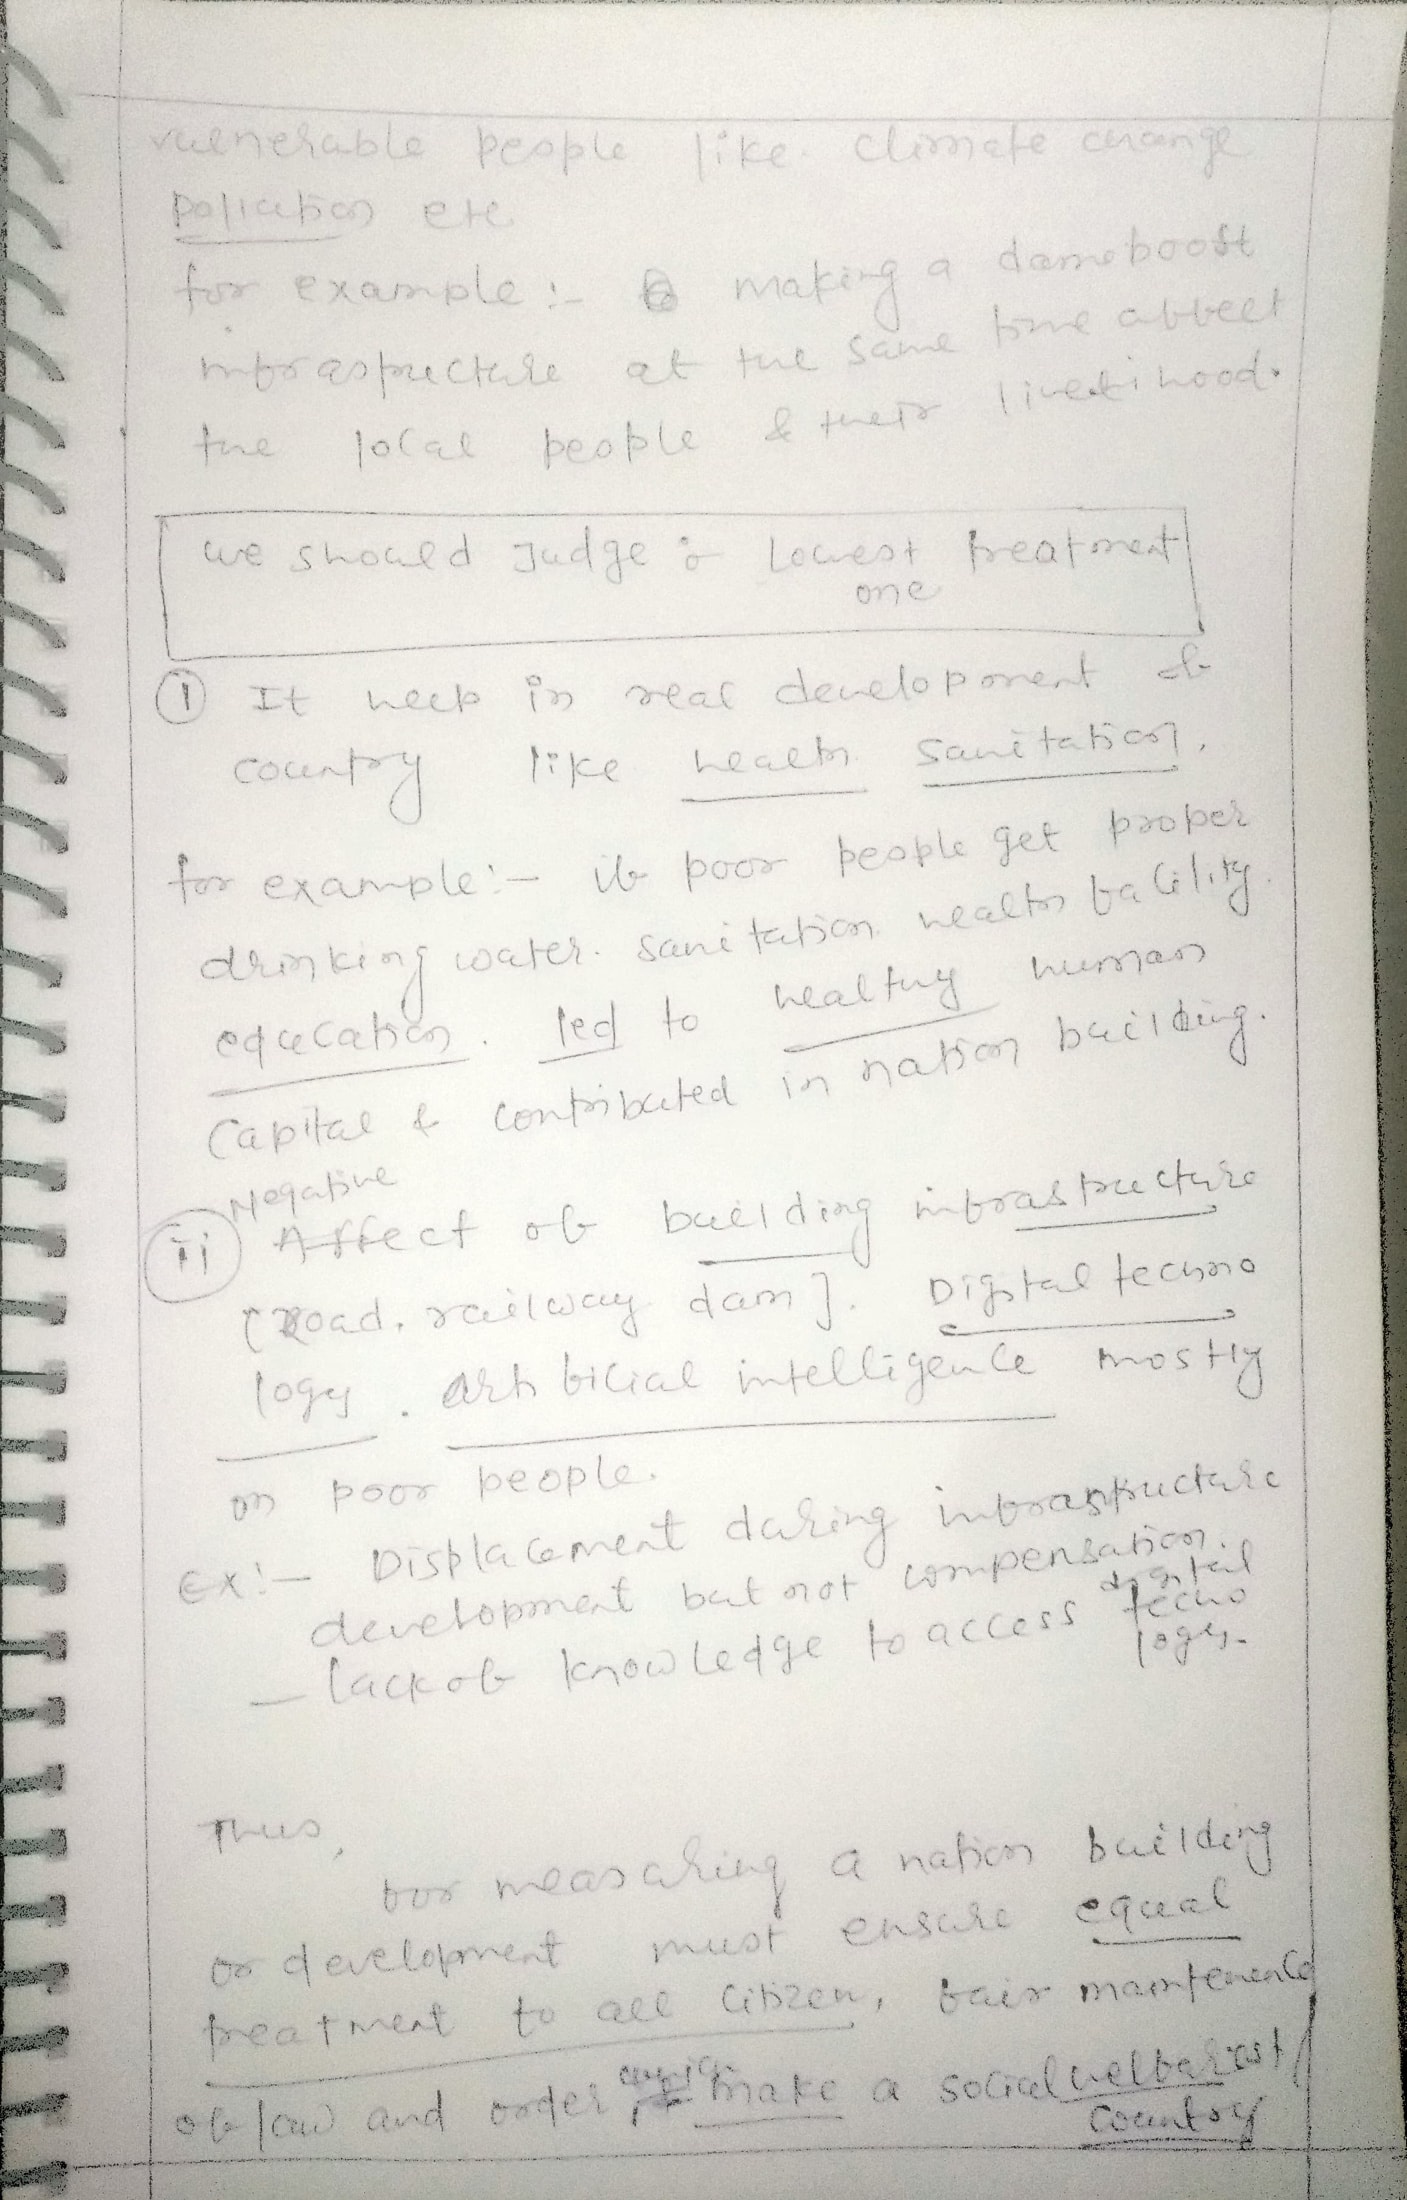 vulnerable people like climate change
pollution etc
for example :- making a dam boost
infrastructure at the same time affect
the local people & their livelihood.
we should Judge : Lowest treatment
one
(i) It help in real development of
country like health sanitation,
for example :- if poor people get proper
drinking water. sanitation health facility.
education. led to healthy human
Capital & contributed in nation building.
Negative
(ii) Affect of building infrastructure
[road, railway dam]. Digital techno
logy. artificial intelligence mostly
on poor people.
Ex :- Displacement during infrastructure
development but not compensation.
- lack of knowledge to access digital
techno
logy.
Thus,
for measuring a nation building
or development must ensure equal
treatment to all citizen, fair maintenence
of law and order make a social welfarist
country